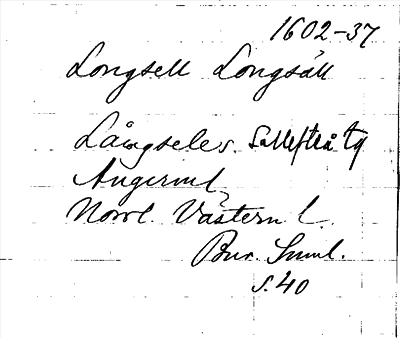 1602-37
Longsell Longsäll
Långsele s. Sollefteå tg
Ångerml
Norrl. Västern l.
Bur. Suml.
s. 40